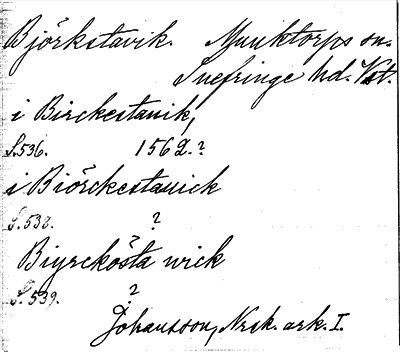 Björkstavik. Munktorps sn.
Snefringe hd. Vst.
i Birckestauik,
S.536. 1562.?
i Biörckestauick
S.538. ?
Biyrckösta wick
S.539. ?
Johansson, Norsk. ark. I.